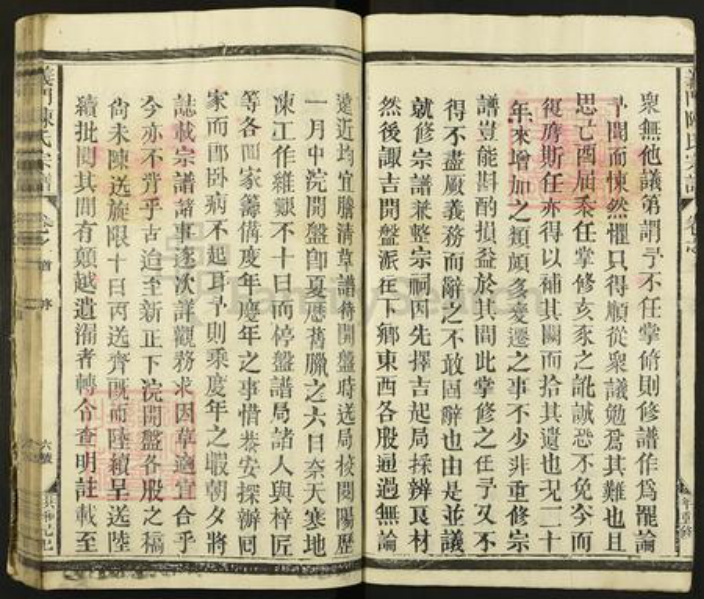 衆無他議第謂予不任掌脩則修譜作爲罷論
予聞而悚然懼只得順從衆議勉爲其難也且
思己酉屆忝任掌修亥豕之訛誠恐不免今而
復膺斯任亦得以補其闕而拾其遺也況二十
年來增加之類頗多變遷之事不少非重修宗
譜豈能斟酌損益於其間此掌修之任予又不
得不盡厥義務而辭之不敢固辭也由是並議
就修宗譜兼整宗祠因先擇吉起局採辦良材
然後諏吉開盤派任下鄉東西各股通過無論
遠近均宜謄清草譜待開盤時送局校閱陽歷
一月中浣開盤卽夏歷舊臘之六日奈天寒地
凍工作維艱不十日而停盤譜局諸人與梓匠
等各回家籌備度年慶年之事惜恭安探辦回
家而卽卧病不起耳予則乘慶年之暇朝夕將
誌載宗譜諸事逐次詳觀務求因革適宜合乎
今亦不背乎古迨至新正下浣開盤各股之稿
尚未陳送旋限十日內送齊旣而陸續呈送陸
續批閱其間有顛越遺漏者轉令查明註載至
義門陳氏宗譜
卷之
首
序
六號